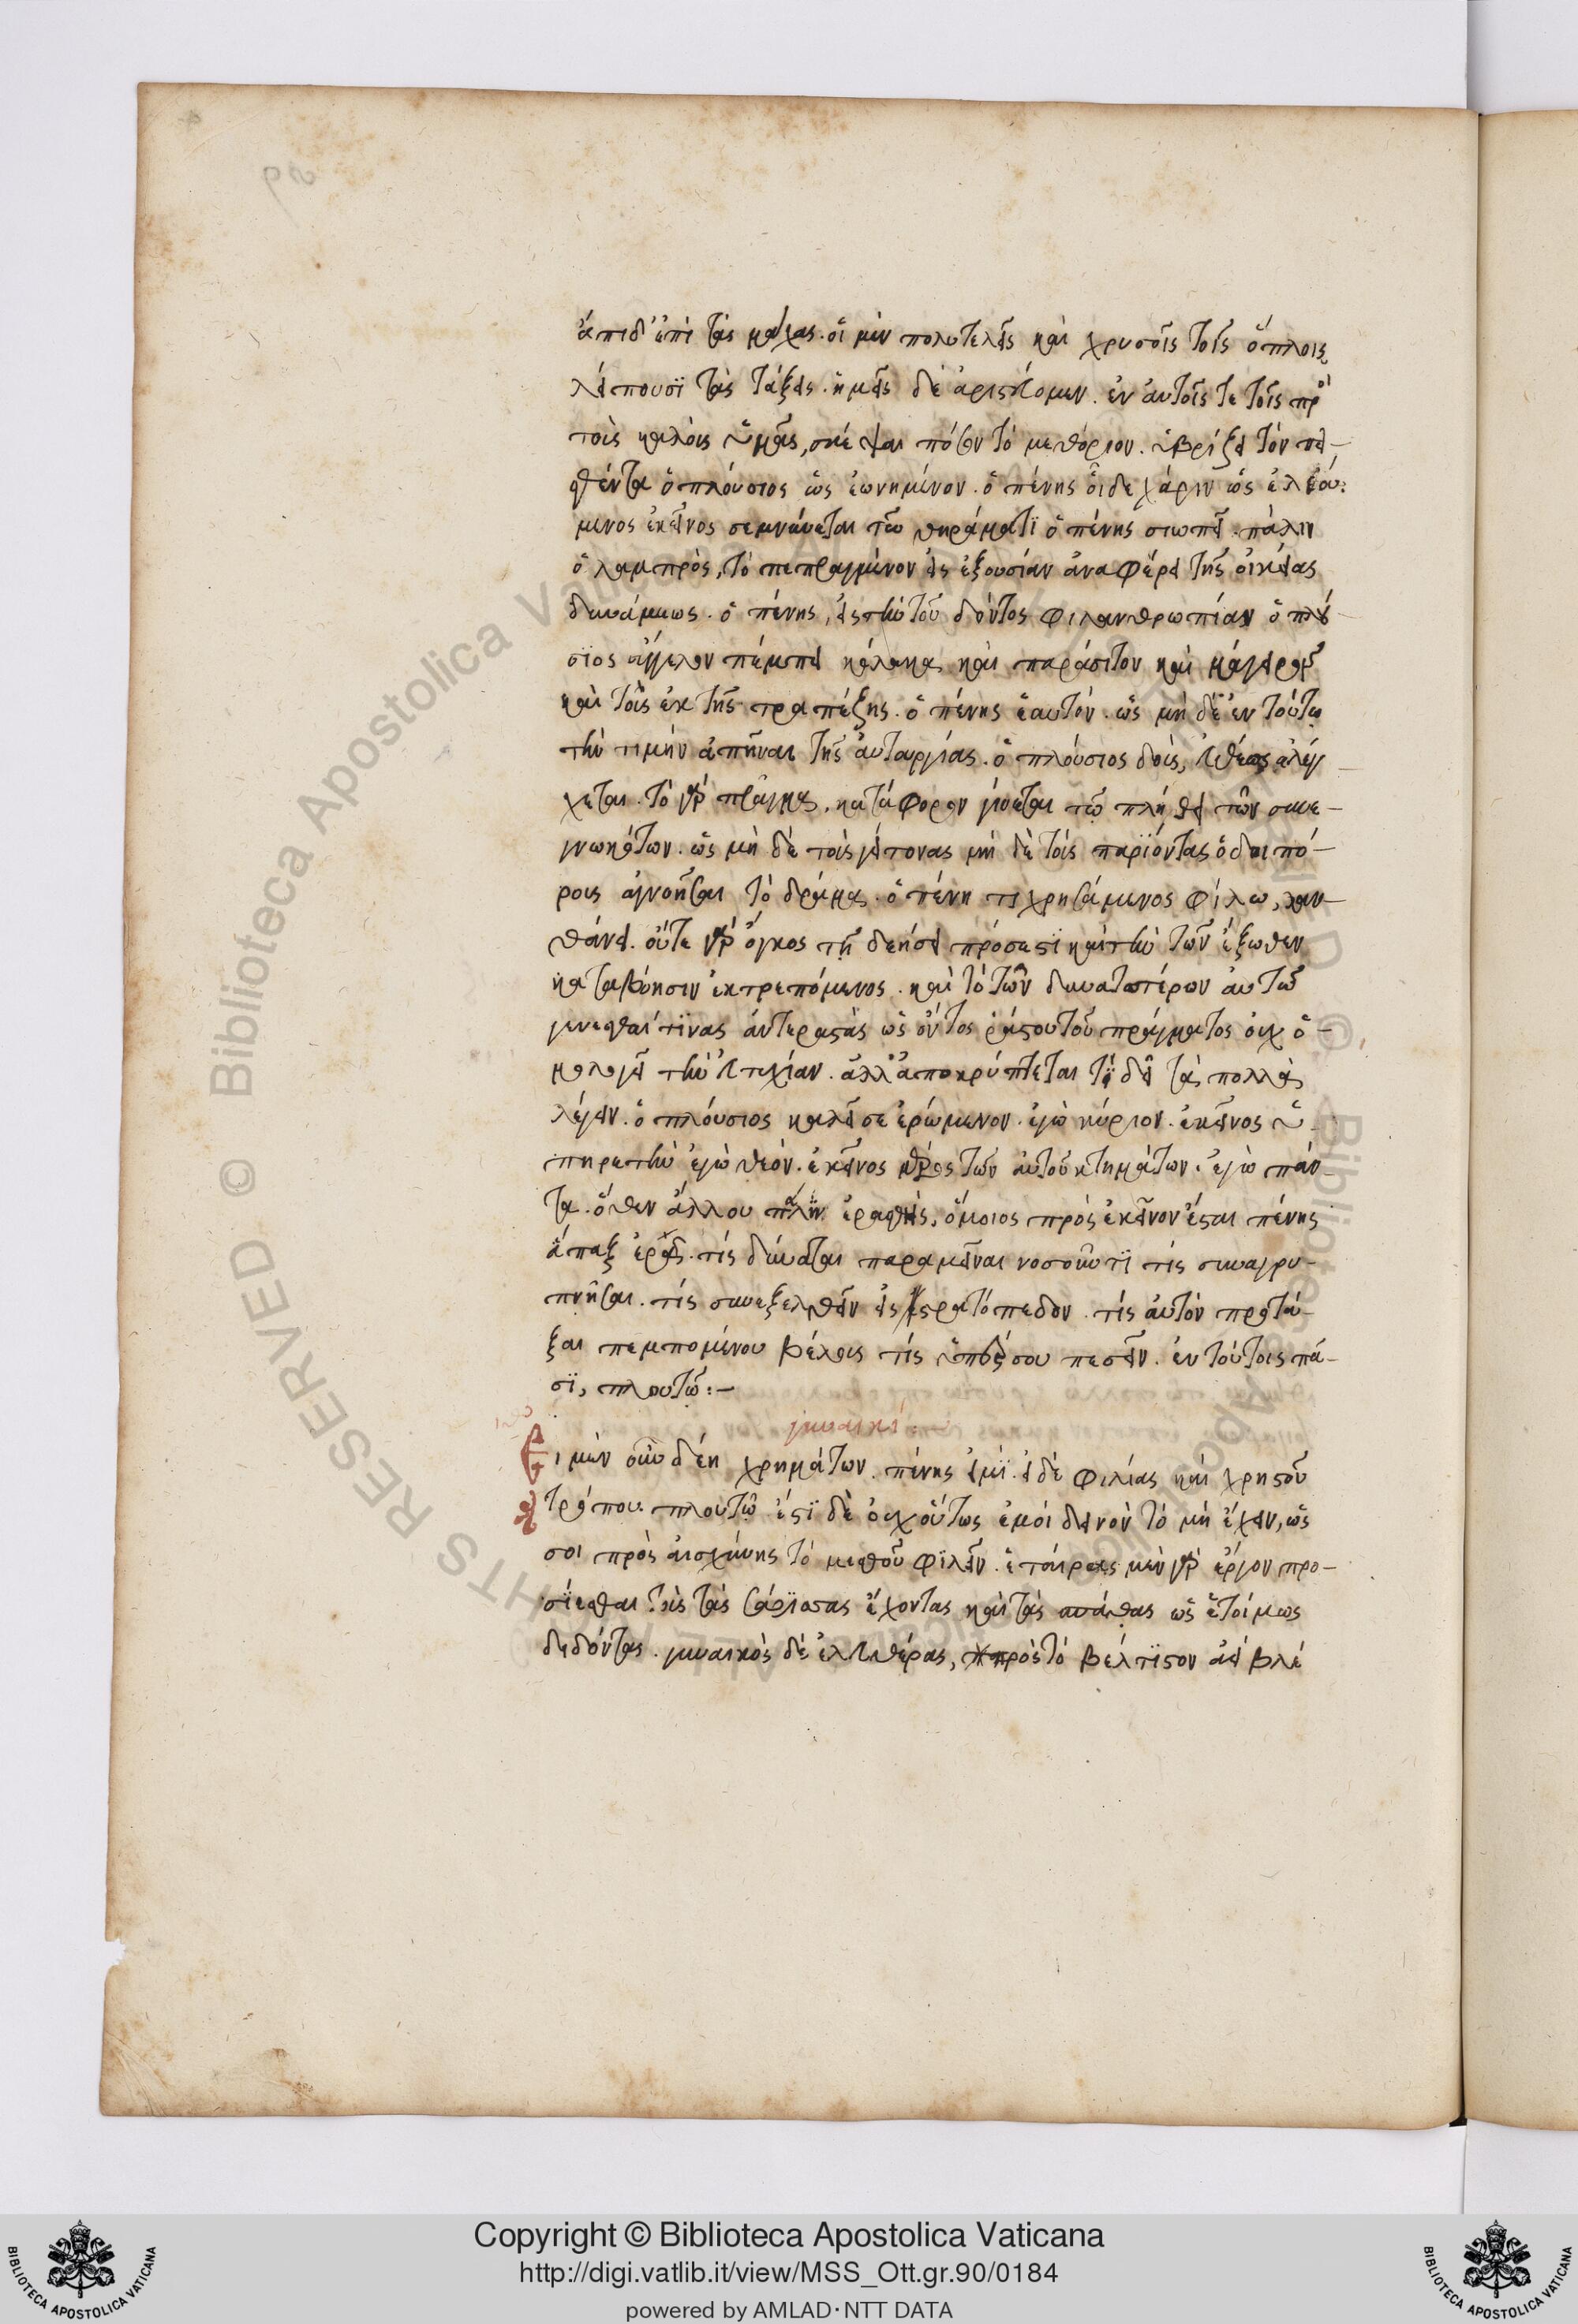 ἄπιδ' ἐπὶ τὰς μάχας. οἱ μὲν πολυτελεῖς καὶ χρυσοῖς τοῖς ὅπλοις
λείπουσϊ τὰς τάξεις. ἡμεῖς δὲ ἀριστεύομεν. ἐν αὐτοῖς τε τοῖς πρὸ
τοὺς καλοὺς ὑμᾶς, σκέψαι πόσον τὸ μεθόριον. ὑβρίζει τὸν πει-
σθέντα ὁ πλούσιος ὡς ἐωνημένον. ὁ πένης οἶδε χάριν ὡς ἐλεού-
μενος ἐκεῖνος σεμνύνεται τῷ θηράματϊ ὁ πένης σιωπεῖ. πάλιν
ὁ λαμπρὸς, τὸ πεπραγμένον εἰς ἐξουσίαν ἀναφέρει τῆς οἰκείας
δυνάμεως. ὁ πένης, εἰς τὴν τοῦ δόντος φιλανθρωπίαν ὁ πλού-
σϊος ἄγγελον πέμπει κόλακα καὶ παράσιτον καὶ μάγειρον
καὶ τοὺς ἐκ τῆς τραπέζης. ὁ πένης ἑαυτόν. ὡς μὴ δὲ ἐν τούτῳ
τὴν τιμὴν ἀπεῖναι τῆς αὐτουργίας. ὁ πλούσιος δοὺς, εὐθέως ἐλέγ-
χεται. τὸ γὰρ πρᾶγμα, κατάφορον γίνεται τῷ πλήθει τῶν συνε-
γνωκότων. ὡς μὴ δὲ τοὺς γείτονας μὴ δὲ τοὺς παρϊόντας ὁδοιπό-
ρους ἀγνοῆσαι τὸ δρᾶμα. ὁ πένητι χρησάμενος φίλῳ, λαν-
θάνει. οὔτε γὰρ ὄγκος τῇ δεήσει πρόσεστϊ καὶ τὴν τῶν ἔξωθεν
καταβόησιν ἐκτρεπόμενος. καὶ τὸ τῶν δυνατωτέρων αὐτῷ
γενέσθαι τϊνας ἀντεραστὰς ὡς ὄντος ῥᾴστου τοῦ πράγματος οὐχ ὁ-
μολογεῖ τὴν εὐτυχίαν. ἀλλ' ἀποκρύπτεται τί δεῖ τὰ πολλὰ
λέγειν. ὁ πλούσιος καλεῖ σε ἐρώμενον. ἐγὼ κύριον. ἐκεῖνος ὑ-
πηρέτην ἐγὼ θεόν. ἐκεῖνος μέρος τῶν αὐτοῦ κτημάτων. ἐγὼ πάν-
τα. ὅθεν ἄλλου πάλϊν ἐρασθεὶς, ὅμοιος πρὸς ἐκεῖνον ἔσται πένης
ἅπαξ ἐρᾷ. τίς δύναται παραμεῖναι νοσοῦντϊ τίς συναγρυ-
πνῆσαι. τίς συνεξελθεῖν εἰς στρατόπεδον. τίς αὐτὸν προτά-
ξαι πεμπομένου βέλους τίς ὑπὲρ σου πεσεῖν. ἐν τούτοις πᾶ-
σϊ, πλουτῶ:-
γυναικί:-
Εἰ μὲν οὖν δέῃ χρημάτων. πένης εἰμϊ. εἰ δὲ φιλίας καὶ χρηστοῦ
τρόπου. πλουτῶ ἔστϊ δὲ οὐχ οὕτως ἐμοὶ δεινὸν τὸ μὴ ἔχειν, ὥς
σοι πρὸς αἰσχύνης τὸ μισθοῦ φϊλεῖν. ἑταίρας μὲν γὰρ ἔργον προ-
σϊεσθαι τοὺς τὰς σαρϊσας ἔχοντας καὶ τὰς σπάθας ὡς ἑτοίμως
διδόντας. γυναικὸς δὲ ἐλευθέρας, πρὸς τὸ βέλτϊστον ἀεὶ βλέ